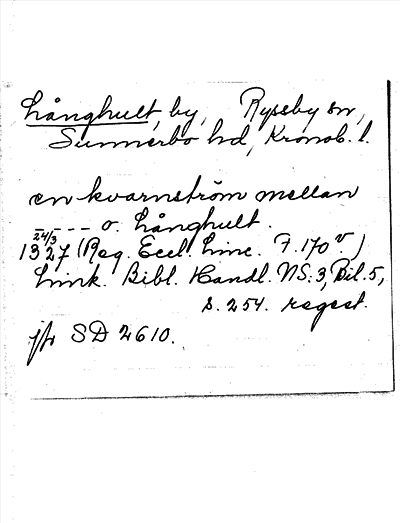 Långhult, by, Ryssby sn,
Sunnerbo hd, Kronob. l.
en kvarnström mellan
– – – – o. Långhult.
24/3
1327 (Reg. Eccl. Linc. F. 170 v.)
Link. Bibl. Handl. NS: 3, Bil. 5,
s. 254. regest.
jfr SD 2610.